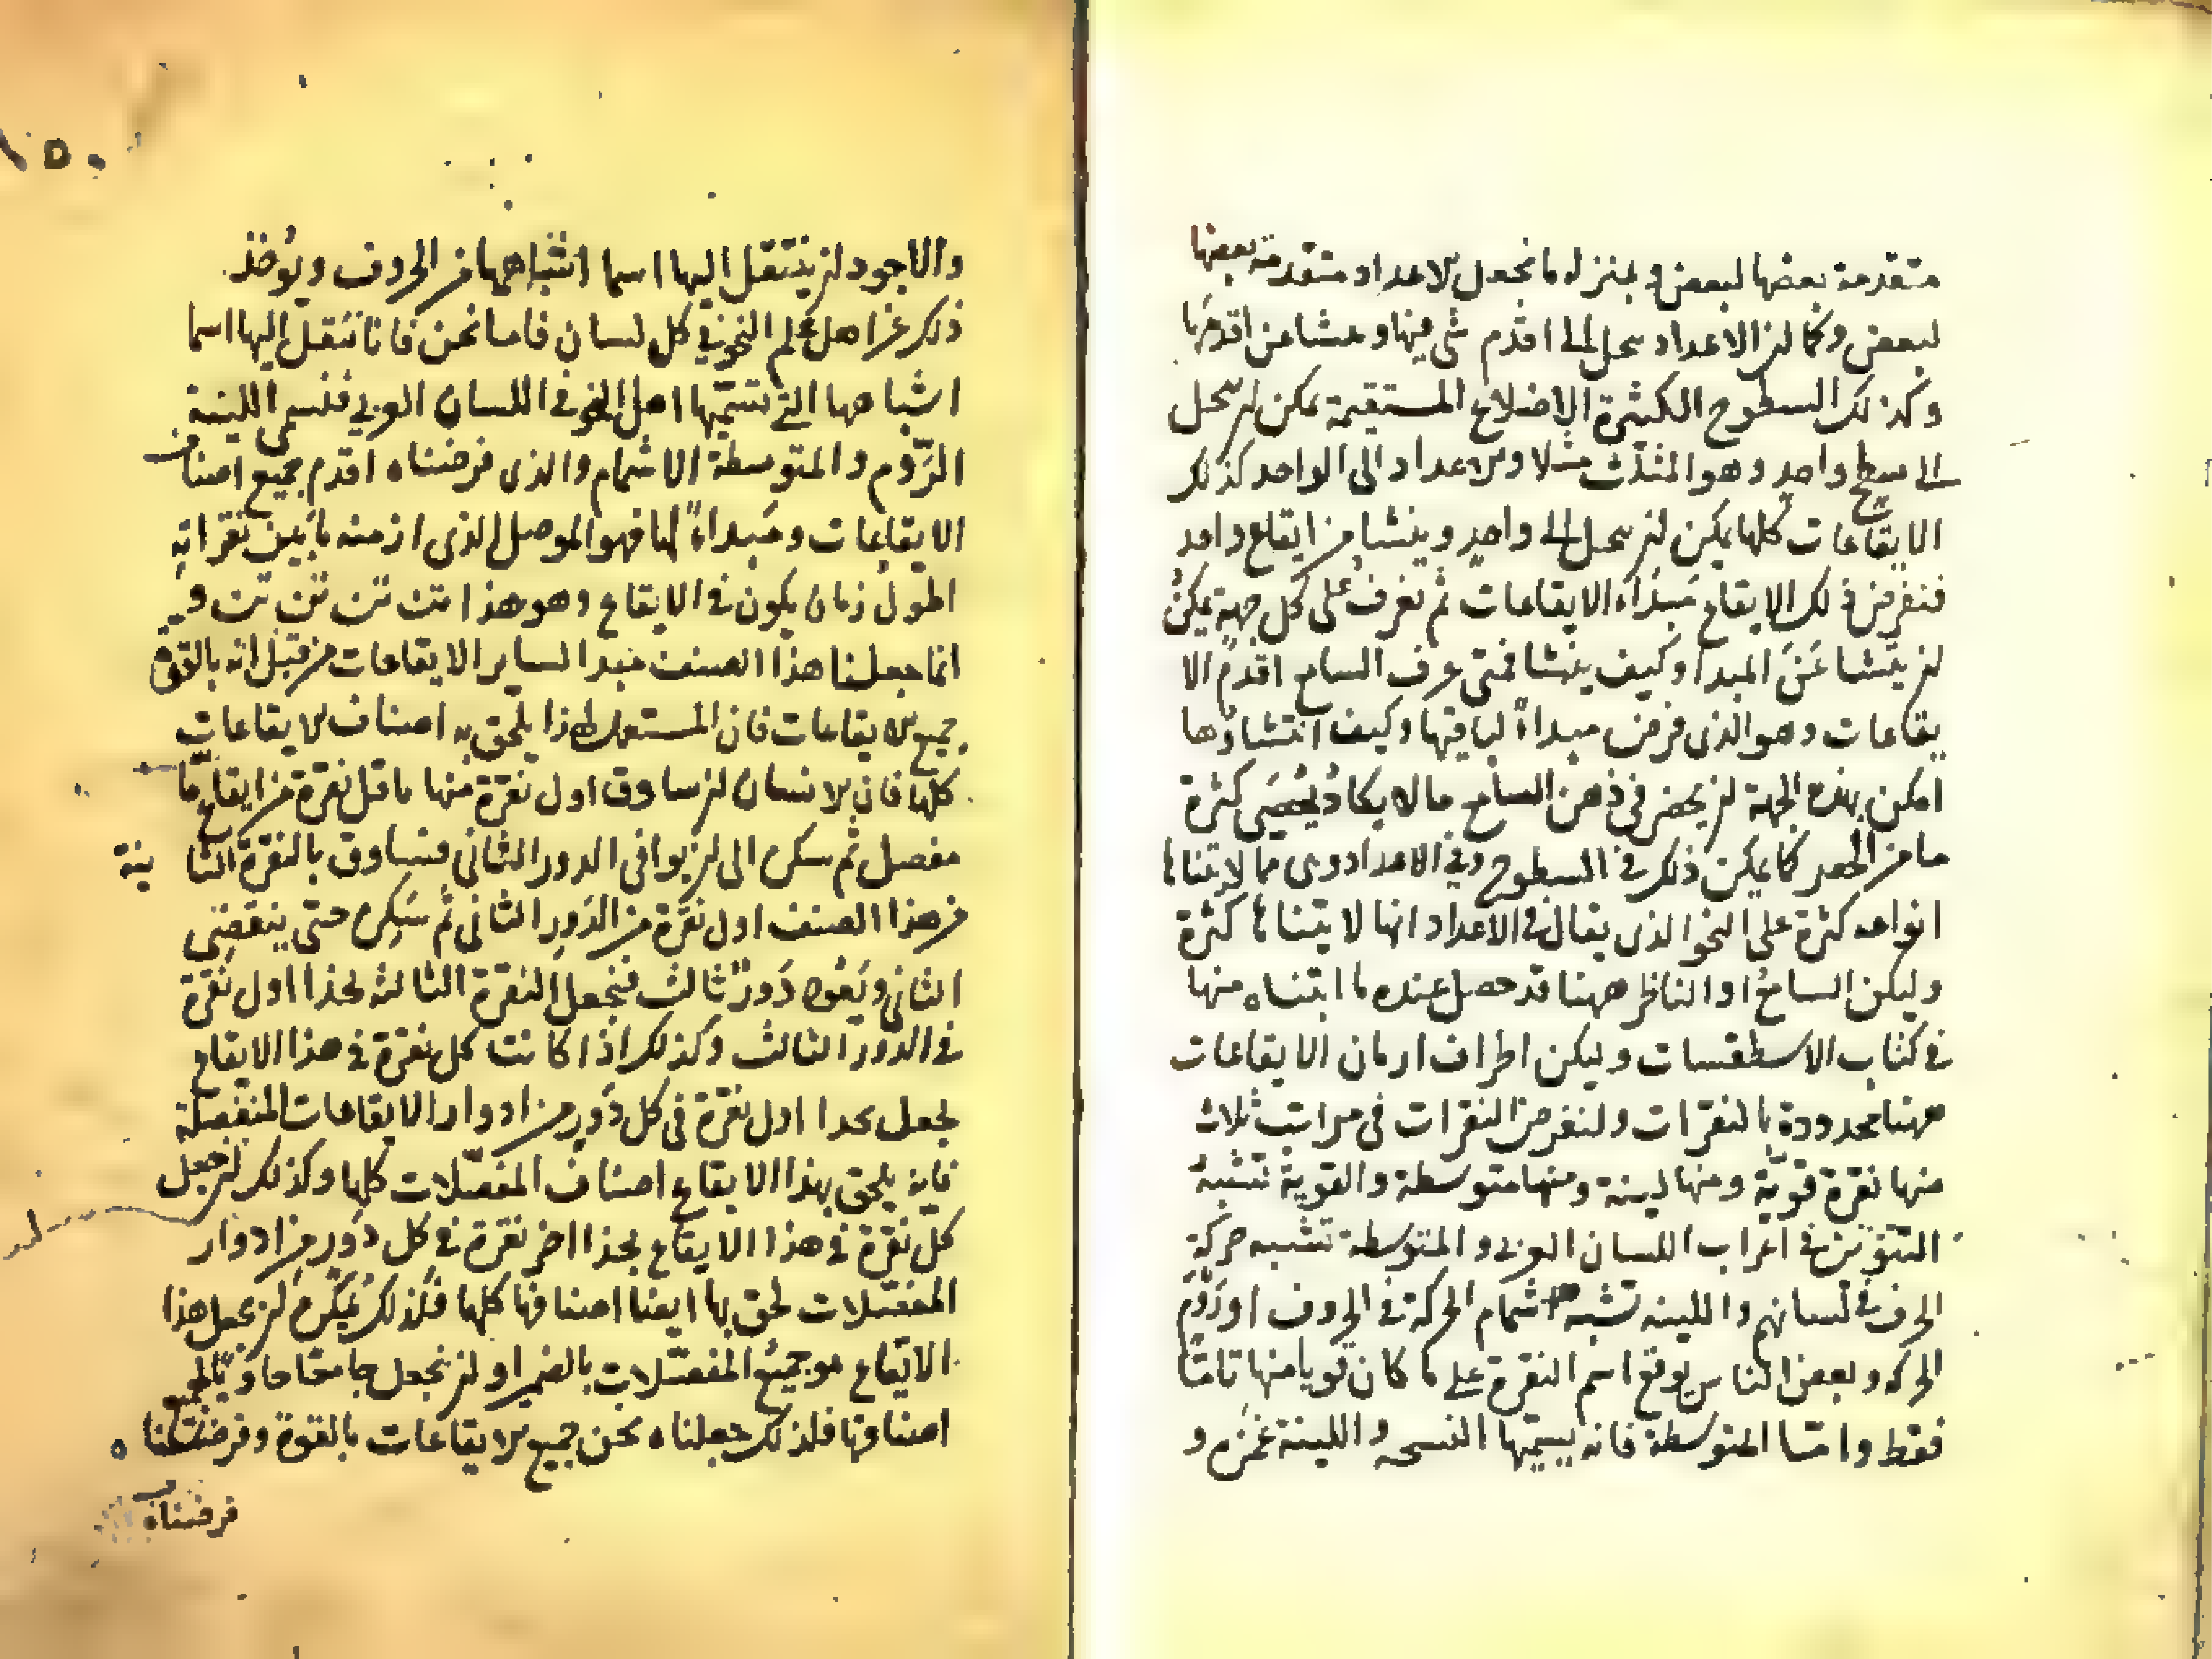 متقدمة بعضها لبعض و بمنزله ما نجعل الاعداد متقدمة بعضها
لبعض وكما ان الاعداد تنحل الى اقدم شى فيها ومنشا عن اقدمها
وكذلك السطوح الكثيرة الاضلاع المستقيمة يمكن ان تنحل
الى سطح واحد وهو المثلث مثلا والاعداد الى الواحد كذلك
الايقاعات كلها يمكن ان تنحل الى واحد وينشا من ايقاع واحد
فنفرض ذلك الايقاع مبداء الايقاعات ثم نعرف على كل جهة يمكن
ان ينشا عن المبدا وكيف ينشا فمتى عرف السامع اقدم الا
يقاعات وهو الذى فرض مبداء لباقيها وكيف انتشاؤها
امكن بهذه الجهة ان يحضر فى ذهن السامع ما لا يكاد يحصى كثرة
ما من الحصر كما يمكن ذلك فى السطوح وفى الاعداد وى ما لا يتناها
انواعه كثرة على النحو الذى يقال فى الاعداد انها لا يتناها كثرة
وليكن السامع او الناظر ههنا قد حصل عنده ما اثبتناه منها
فى كتاب الاسطقسات وليكن اطراف ازمان الايقاعات
ههنا محدودة بالنقرات ولنفرض النقرات فى مراتب ثلاث
منها نقرة قوية ومنها لينة ومنها متوسطة والقوية تشبه
التنوين فى اعراب اللسان العربى والمتوسطة تشبه حركة
الحرف فى لسانهم واللينه تشبه اشمام الحركة فى الحروف او روم
الحركه وبعض الناس يوقع اسم النقرة على ما كان قويا منها تاما
فقط واما المتوسطة فانه يسميها المسحه واللينة غمزه و
١٥٠
والاجود ان ينتقل اليها اسما اشباهها من الحروف ويوخذ
ذلك عن اهل علم النحو فى كل لسان فاما نحن فانا ننقل اليها اسما
اشباهها التى تسميها اهل النحو فى اللسان العربى فنسمى اللينة
الروم والمتوسطة الاشمام والذى فرضناه اقدم جميع اصناف
الايقاعات ومبداء لها فهو الموصل الذى ازمنه ما بين نقراته
اطول زمان يكون فى الايقاع وهو هذا تن تن تن تن و
انما جعلنا هذا الصنف مبدا لساير الايقاعات من قبل انه بالقوة
جميع الايقاعات فان المستعمل لهذا يلحق به اصناف الايقاعات
كلها فان الانسان ان ساوق اول نقرة منها ما قبل نقرة من ايقاع ما
مفصل ثم سكن الى ان يوافى الدور الثانى فساوق بالنقرة الثا نية
من هذا الصنف اول نقرة من الدور الثانى ثم سكن حتى ينقضى
الثانى ويعود دور ثالث فنجعل النقرة الثالثه بحذا اول نقرة
فى الدور الثالث وكذلك اذا كانت كل نقرة فى هذا الايقاع
نجعل بحدا اول نقرة فى كل دور من ادوار الايقاعات المنفصلة
فانه يلحق بهذا الايقاع اصناف المفصلات كلها وكذلك ان جعل
كل نقرة فى هذا الايقاع بحذا اخر نقرة فى كل دور من ادوار
المفصلات لحق بها ايضا اصنافها كلها فلذلك يمكن ان نجعل هذا
الايقاع هو جميع المفصلات بالضمير او ان نجعل جامعا لجميع
اصنافها فلذلك جعلناه نحن جميع الايقاعات بالقوة
فرضناه